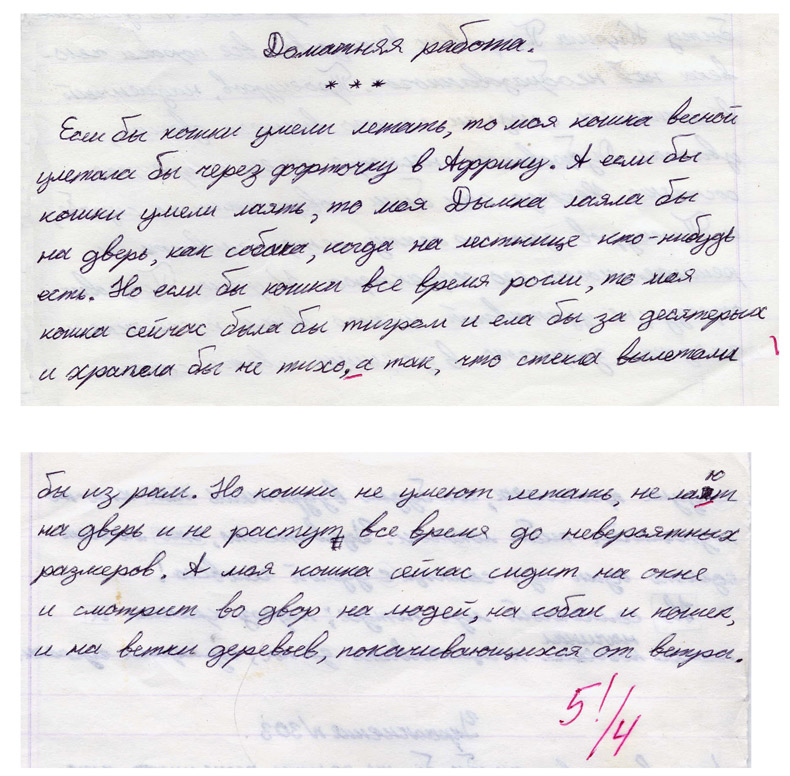 Домашняя работа.
* * *
Если бы кошки умели летать, то моя кошка весной
улетала бы через форточку в Африку. А если бы
кошки умели лаять, то моя Дымка лаяла бы
на дверь, как собака, когда на лестнице кто-нибудь
есть. Но если бы кошки все время росли, то моя
кошка сейчас была бы тигром и ела бы за десятерых
и храпела бы не тихо, а так, что стекла вылетали
бы из рам. Но кошки не умеют летать, не лают
на дверь и не растут все время до невероятных
размеров. А моя кошка сейчас сидит на окне
и смотрит во двор на людей, на собак и кошек,
и на ветки деревьев, покачивающихся от ветра.
5!/4